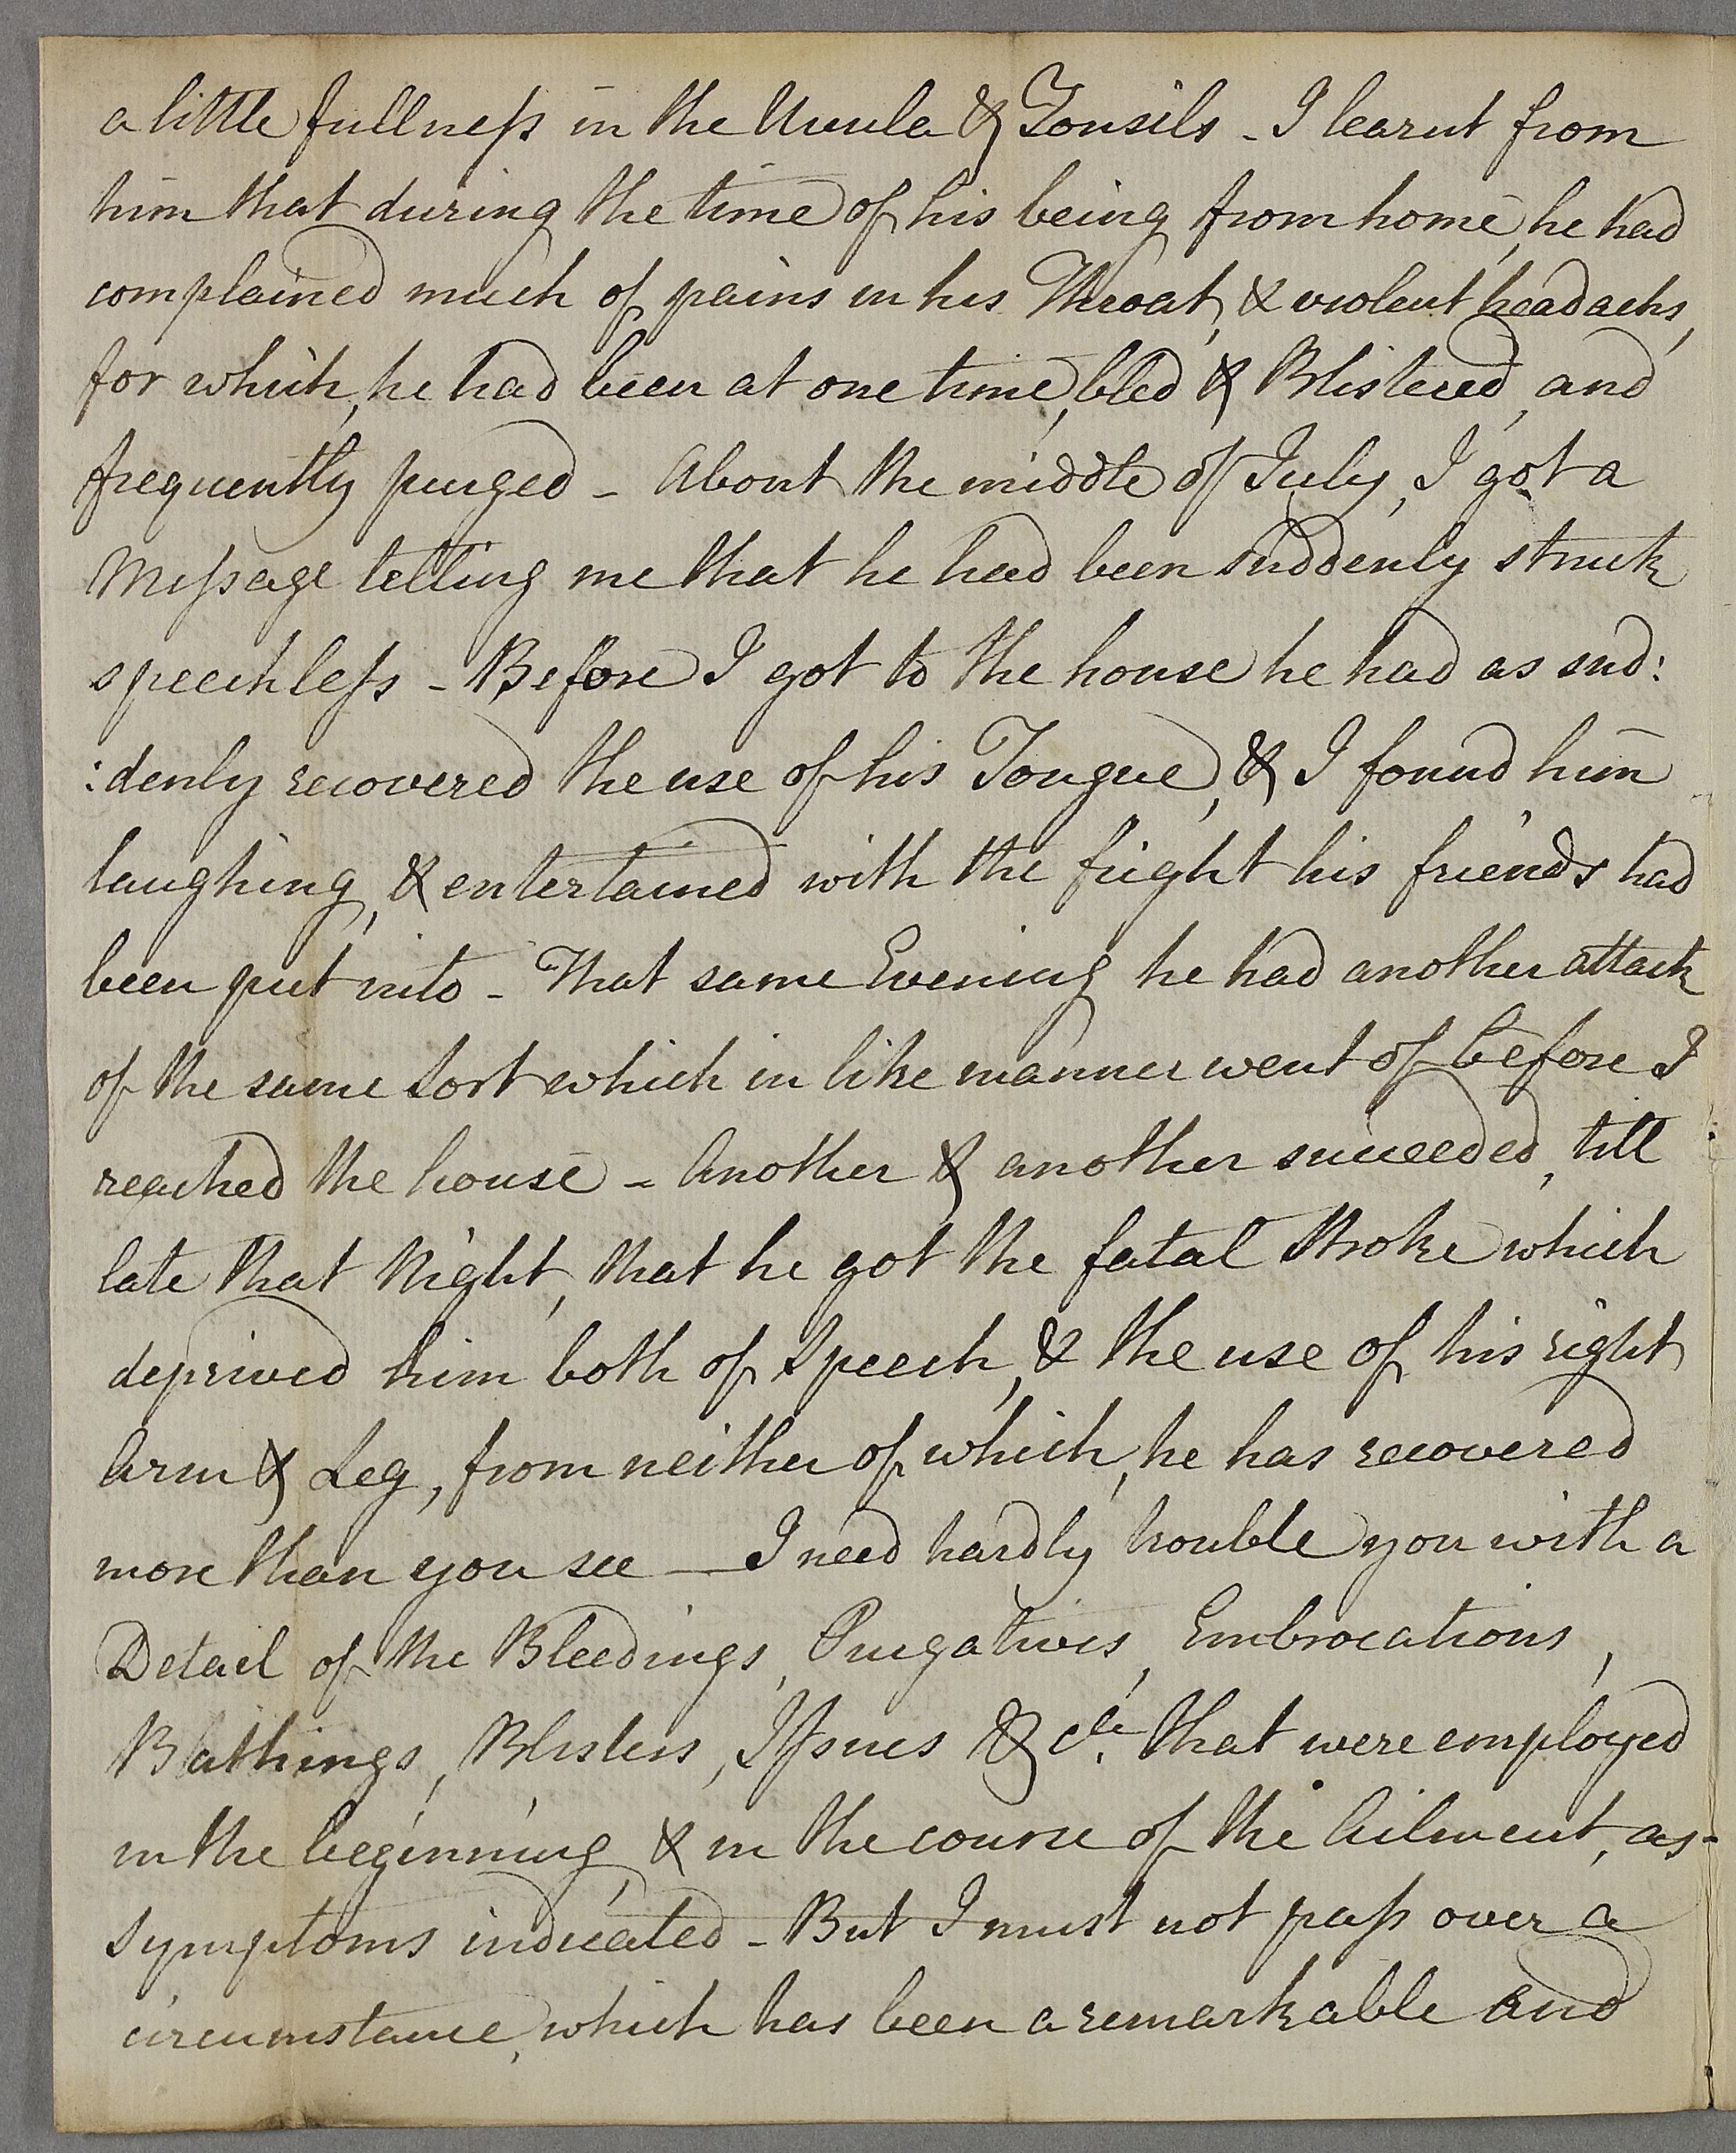 a little fullneſs in the Uvula & Tonsils - I learnt from
him that during the time of his being from home, he had
complained much of pains in his Throat, & violent headachs,
for which, he had been at one time, bled & Blistered, and
frequently purged - About the middle of July, I got a
Meſsage telling me that he had been suddenly struck
speechleſs - Before I got to the house he had as sud:
:denly recovered the use of his Tongue, & I found him
laughing, & entertained with the fright his friends had
been put into - That same Evening he had another attack
of the same sort which in like manner went of before I
reached the house - Another & another succeeded, till
late that Night, that he got the fatal Stroke which
deprived him both of Speech, & the use of his right
Arm & Leg, from neither of which, he has recovered
more than you see — I need hardly trouble you with a
Detail of the Bleedings, Purgatives, Embrocations,
Bathings, Blisters, Iſsues & ca. that were employed
in the beginning, & in the course of the Ailment, as-
symptoms indicated - But I must not paſs over a
circumstance, which has been a remarkable and